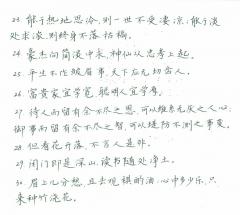 23. 能于热地思冷，则一世不受凄凉；能于淡
处求浓，则终身不落枯槁。
24. 豪杰向简淡中求，神仙从忠孝上起。
25. 平生不作皱眉事，天下应无切齿人。
26. 富贵家宜学宽，聪明人宜学厚。
27. 待人而留有余不尽之恩，可以维系无厌之人心；
御事而留有余不尽之智，可以提防不测之事变。
28. 但看花开落，不言人是非。
29. 闭门即是深山，读书随处净土。
30. 眉上几分愁，且去观棋酌酒；心中多少乐，只
来种竹浇花。